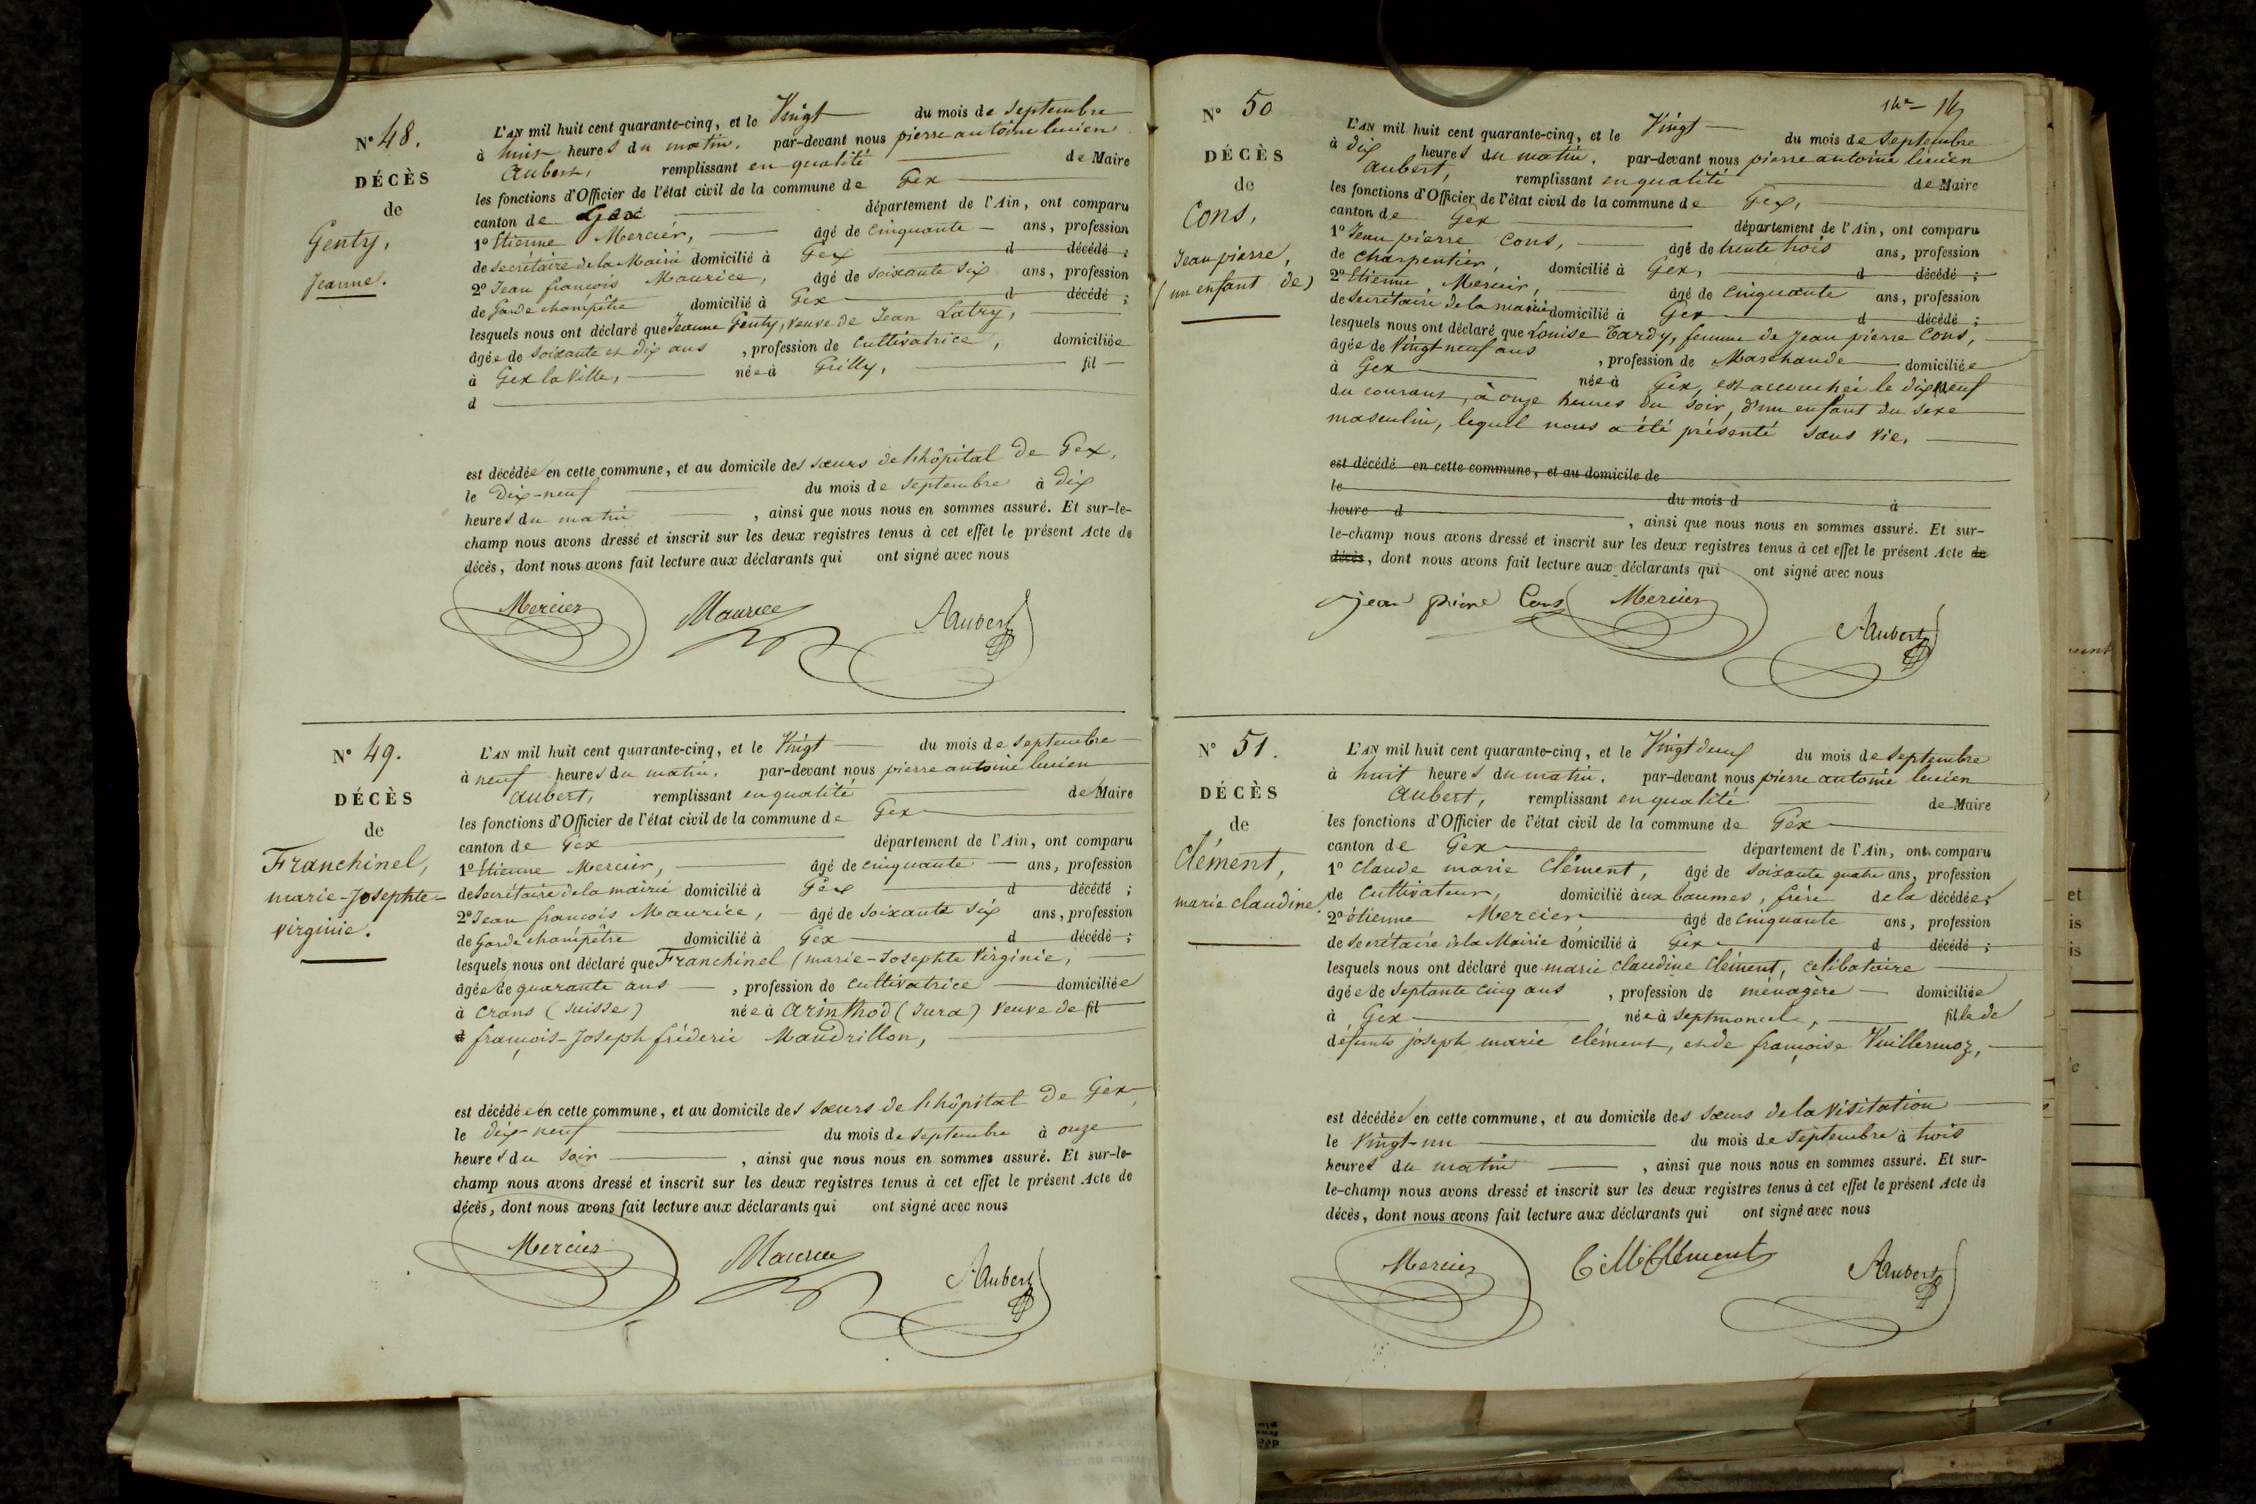 N° 48.
DÉCÈS
de
Genty,
Jeanne.
L'AN mil huit cent quarante-cinq, et le Vingt du mois de septembre
à huit heures du matin. par-devant nous pierre antoine lucien
aubert, remplissant en qualité de Maire
les fonctions d'Officier de l'état civil de la commune de Gex
canton de Gex département de l'Ain, ont comparu
1° Etienne Mercier, âgé de cinquante ans, profession
de secrétaire de la Mairie domicilié à Gex d décédé ;
2° Jean françois Maurice, âgé de soixante six ans, profession
de Garde champêtre domicilié à Gex d décédé ;
lesquels nous ont déclaré que Jeanne Genty, veuve de Jean Latry,
âgée de soixante et dix ans , profession de cultivatrice, domiciliée
à Gex la Ville, née à Grilly, fil
d
est décédée en cette commune, et au domicile des sœurs de l'hôpital de Gex,
le Dix-neuf du mois de septembre à dix
heures du matin , ainsi que nous nous en sommes assuré. Et sur-le-
champ nous avons dressé et inscrit sur les deux registres tenus à cet effet le présent Acte de
décès, dont nous avons fait lecture aux déclarants qui ont signé avec nous
Mercier Maurice Aubert
N° 49.
DÉCÈS
de
Franchinel,
marie-Josephte-
virginie.
L'AN mil huit cent quarante-cinq, et le Vingt du mois de septembre
à neuf heures du matin. par-devant nous pierre antoine lucien
aubert, remplissant en qualité de Maire
les fonctions d'Officier de l'état civil de la commune de Gex
canton de Gex département de l'Ain, ont comparu
1° Etienne Mercier, âgé de cinquante ans, profession
de secrétaire de la mairie domicilié à Gex d décédé ;
2° Jean françois Maurice, âgé de soixante six ans, profession
de Garde champêtre domicilié à Gex d décédé ;
lesquels nous ont déclaré que Franchinel (marie-Josephte Virginie,
âgée de quarante ans , profession de cultivatrice domiciliée
à Crans (suisse) née à arinthod (Jura) veuve de fil
d françois-Joseph fréderic Mandrillon,
est décédée en cette commune, et au domicile des sœurs de l'hôpital de Gex,
le dix-neuf du mois de septembre à onze
heures du soir , ainsi que nous nous en sommes assuré. Et sur-le-
champ nous avons dressé et inscrit sur les deux registres tenus à cet effet le présent Acte de
décès, dont nous avons fait lecture aux déclarants qui ont signé avec nous
Mercier Maurice Aubert
N° 50
DÉCÈS
de
Cons,
Jean pierre,
(un enfant de)
L'AN mil huit cent quarante-cinq, et le Vingt du mois de septembre
à dix heures du matin. par-devant nous pierre antoine lucien
aubert, remplissant en qualité de Maire
les fonctions d'Officier de l'état civil de la commune de Gex,
canton de Gex département de l'Ain, ont comparu
1° Jean pierre Cons, âgé de trente trois ans, profession
de charpentier, domicilié à Gex, d décédé ;
2° Etienne Mercier, âgé de cinquante ans, profession
de secrétaire de la mairie domicilié à Gex d décédé ;
lesquels nous ont déclaré que Louise Tardy, femme de Jean pierre Cons,
âgée de Vingt neuf ans , profession de Marchande domiciliée
à Gex née à Gex, est accouchée le dix neuf
du courant, à onze heures du soir, d'un enfant du sexe
masculin, lequel nous a été présenté sans vie,
est décédé en cette commune, et au domicile de
le du mois d à
heure d , ainsi que nous nous en sommes assuré. Et sur-
le-champ nous avons dressé et inscrit sur les deux registres tenus à cet effet le présent Acte de
décès, dont nous avons fait lecture aux déclarants qui ont signé avec nous
jean pierre Cons Mercier Aubert
N° 51.
DÉCÈS
de
Clément,
marie claudine.
L'AN mil huit cent quarante-cinq, et le Vingt deux du mois de septembre
à huit heures du matin. par-devant nous pierre antoine lucien
aubert, remplissant en qualité de Maire
les fonctions d'Officier de l'état civil de la commune de Gex
canton de Gex département de l'Ain, ont comparu
1° claude marie Clément, âgé de soixante quatre ans, profession
de cultivateur, domicilié aux baumes, frère de la décédée ;
2° étienne Mercier âgé de cinquante ans, profession
de secrétaire de la Mairie domicilié à Gex d décédé ;
lesquels nous ont déclaré que marie claudine Clément, célibataire
âgée de septante cinq ans , profession de ménagère domiciliée
à Gex née à septmoncel, fille de
défunts joseph marie clément, et de françoise Vuillermoz,
est décédée en cette commune, et au domicile des sœurs de la visitation
le Vingt-un du mois de septembre à trois
heures du matin , ainsi que nous nous en sommes assuré. Et sur-
le-champ nous avons dressé et inscrit sur les deux registres tenus à cet effet le présent Acte de
décès, dont nous avons fait lecture aux déclarants qui ont signé avec nous
Mercier C. M. Clément Aubert